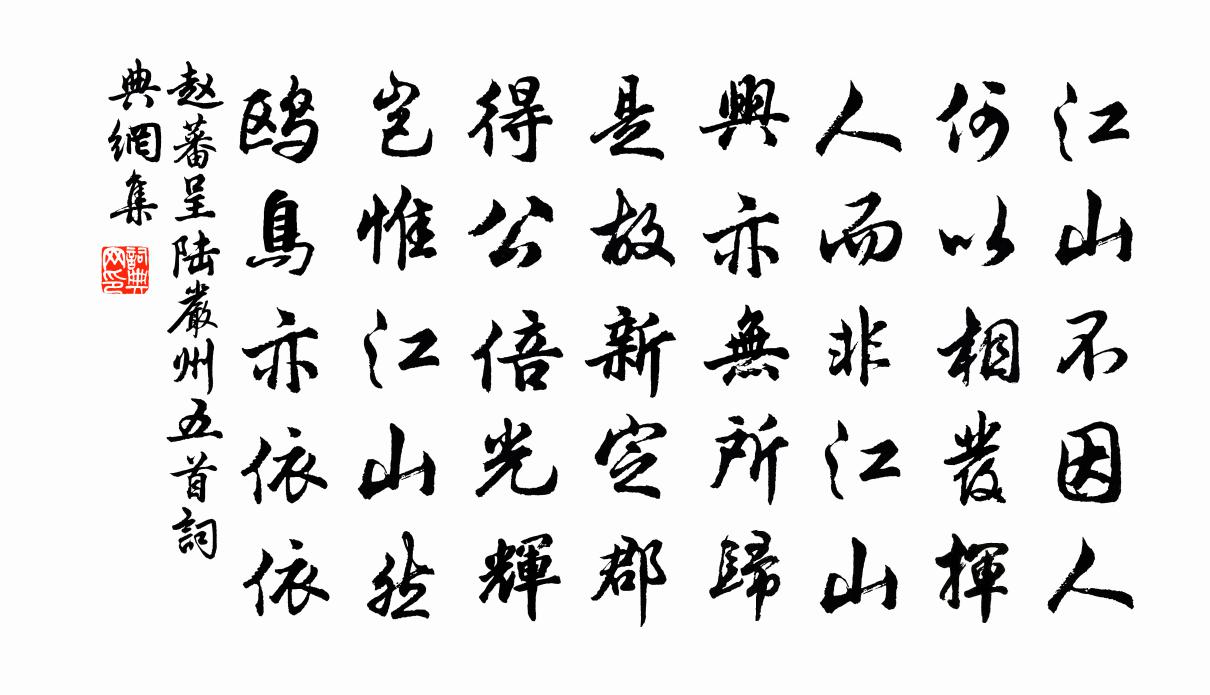 江山不因人
何以相發揮
人而非江山
興亦無所歸
是故新定郡
得公倍光輝
豈惟江山然
鸥鳥亦依依
赵蕃呈陆嚴州五首詞
典網集
詞典
网印